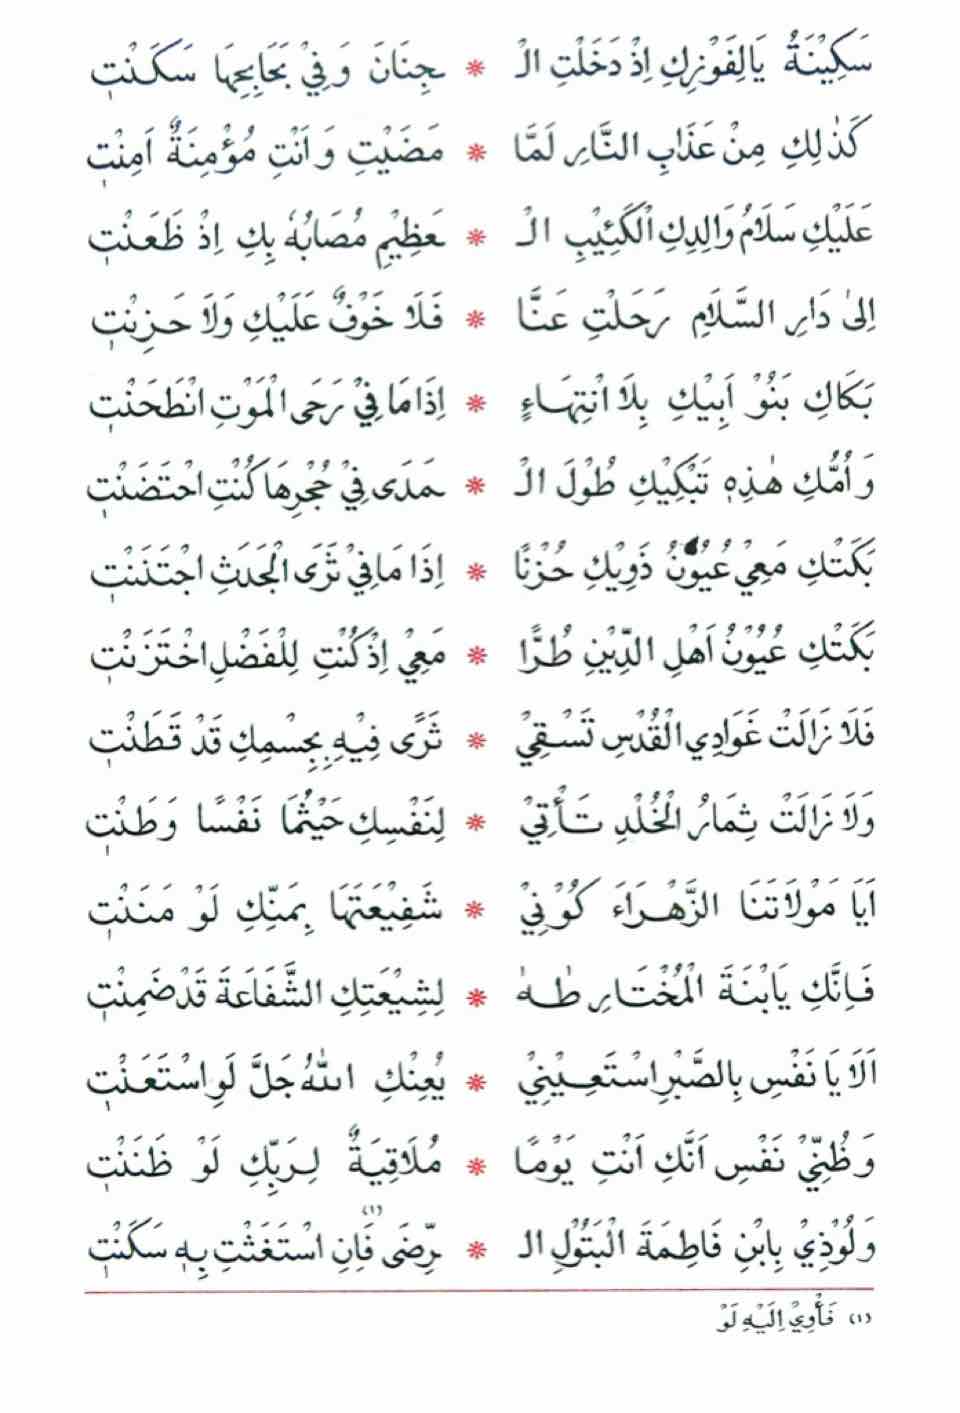 سَكِيْنَةُ يَالِفَوْزِكِ اِذْ دَخَلْتِ الْـ * ـجِنَانَ وَفِيْ بَحَابِحِهَا سَكَنْتِ
كَذٰلِكِ مِنْ عَذَابِ النَّارِ لَمَّا * مَضَيْتِ وَاَنْتِ مُؤْمِنَةٌ اَمِنْتِ
عَلَيْكِ سَلَامُ وَالِدِكِ الْكَئِيْبِ الْـ * ـعَظِيْمِ مُصَابُهٗ بِكِ اِذْ ظَعَنْتِ
اِلىٰ دَارِ السَّلَامِ رَحَلْتِ عَنَّا * فَلَا خَوْفٌ عَلَيْكِ وَلَا حَزِنْتِ
بَكَاكِ بَنُوْ اَبِيْكِ بِلَا انْتِهَاءٍ * اِذَا مَا فِيْ رَحَى الْمَوْتِ انْطَحَنْتِ
وَاُمُّكِ هٰذِهٖ تَبْكِيْكِ طُوْلَ الْـ * ـمَدَى فِيْ حُجْرِهَا كُنْتِ احْتَضَنْتِ
بَكَتْكِ مَعِيْ عُيُوْنُ ذَوِيْكِ حُزْنًا * اِذَا مَا فِيْ ثَرَى الْجَدَثِ اجْتَنَنْتِ
بَكَتْكِ عُيُوْنُ اَهْلِ الدِّيْنِ طُرًّا * مَعِيْ اِذْ كُنْتِ لِلْفَضْلِ اخْتَزَنْتِ
فَلَا زَالَتْ غَوَادِي الْقُدْسِ تَسْقِيْ * ثَرًى فِيْهِ بِجِسْمِكِ قَدْ قَطَنْتِ
وَلَا زَالَتْ ثِمَارُ الْخُلْدِ تَأْتِيْ * لِنَفْسِكِ حَيْثُمَا نَفْسًا وَطَنْتِ
اَيَا مَوْلَاتَنَا الزَّهْرَاءَ كُوْنِيْ * شَفِيْعَتَهَا بِمَنِّكِ لَوْ مَنَنْتِ
فَاِنَّكِ يَابْنَةَ الْمُخْتَارِ طٰهٰ * لِشِيْعَتِكِ الشَّفَاعَةَ قَدْ ضَمِنْتِ
اَلَا يَا نَفْسِ بِالصَّبْرِ اسْتَعِيْنِيْ * يُعِنْكِ اللهُ جَلَّ لَوِ اسْتَعَنْتِ
وَظُنِّيْ نَفْسِ اَنَّكِ اَنْتِ يَوْمًا * مُلَاقِيَةٌ لِرَبِّكِ لَوْ ظَنَنْتِ
وَلُوْذِيْ بِابْنِ فَاطِمَةَ الْبَتُوْلِ الـ * ـرِّضَى (١) فَاِنِ اسْتَغَثْتِ بِهٖ سَكَنْتِ
(١) فَأْوِيْ اِلَيْهِ لَوْ